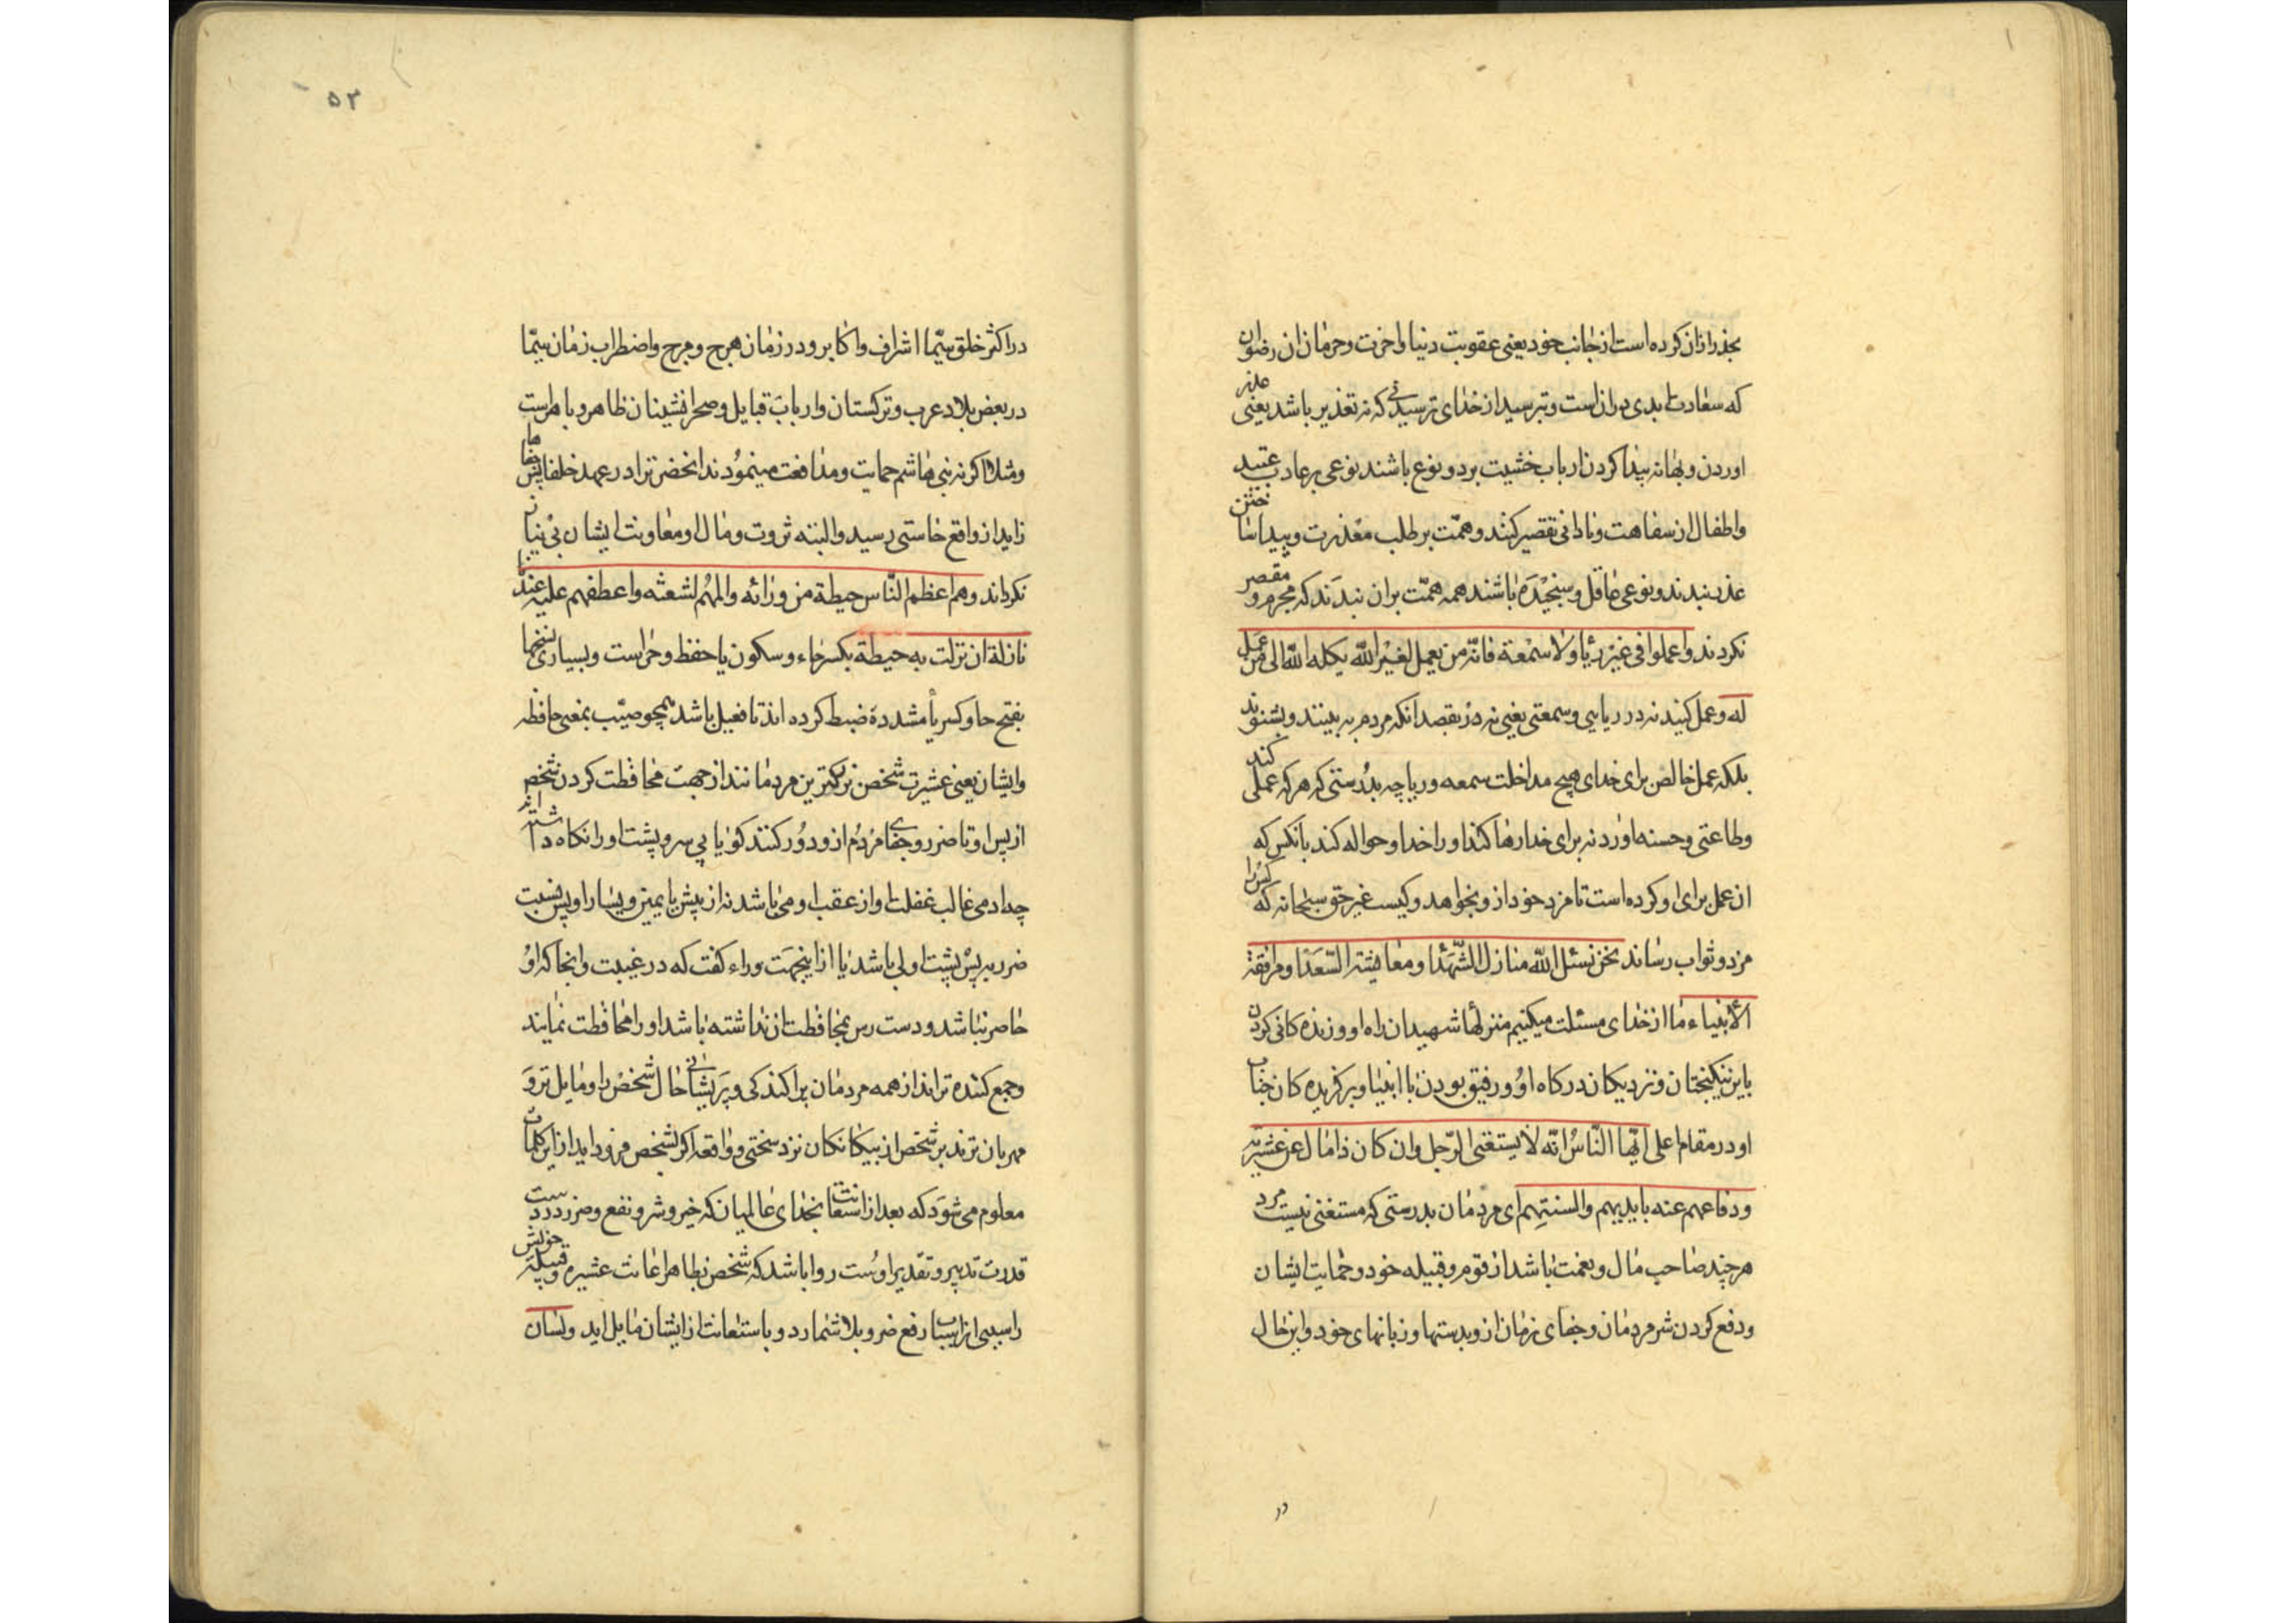 بحذر ازان کرده است از جانب خود یعنی عقوبت دنیا و اخرت و حرمان از رضوان
که سعادت ابدی در انست و بترسید از خدای ترسیدنی که نه تعذیر باشد یعنی عذر
اوردن و بهانه پیدا کردن ارباب خشیت بر دو نوع باشند نوعی بر عادت عبید
و اطفال از سفاهت و نادانی تقصیر کنند و همّت بر طلب معذرت و پیدا ساختن
عذر بندند و نوعی عاقل و سنجیده باشند همه همّت بران بندند که مجرم و مقصر
نکردند واعملوا فی غیر ریا ولا سمعة فانّه من یعمل لغیر اللّه یکله اللّه الی من عمل
له و عمل کنید نه در ریایی و سمعتی یعنی نه در بقصد انکه مردم به بینند و بشنوند
بلکه عمل خالص برای خدای هیچ مداخلت سمعه و ریا چه بدرستی که هر که عملی کند
و طاعتی و حسنه اورد نه برای خدا رها کند او را خدا و حواله کند بانکس که
ان عمل برای او کرده است تا مزد خود از و بخواهد و کیست غیر حق سبحانه که کسی را
مزد و ثواب رساند نحن نسئل اللّه منازل الشّهدا و معایشة السّعدا و مرافقة
الأنبیاء ما از خدای مسئلت میکنیم منزلها شهیدان راه او و زنده کانی کردن
باین نیکبختان و نزدیکان درکاه او و رفیق بودن با انبیا و برکزیده کان جناب
او در مقام اعلی ایّها النّاس انّه لا یستغنی الرّجل وان کان ذا مال عن عشیرته
و دفاعهم عنه بایدیهم والسنتهم ای مردمان بدرستی که مستغنی نیست مرد
هر چند صاحب مال و نعمت باشد از قوم و قبیله خود و حمایت ایشان
و دفع کردن شر مردمان و جفای زمان از و بدستها و زبانهای خود و این حال
در
۵۳
در اکثر خلق سیّما اشراف و اکابر و در زمان هرج و مرج و اضطراب زمان سیّما
در بعض بلاد عرب و ترکستان و ارباب قبایل و صحرا نشینان ظاهر و باهر است
و مثلا اکر نه بنی هاشم حمایت و مدافعت مینمودند انحضرترا در عهد خلفا جفاها پیش
زاید از واقع خاستی رسید و البته ثروت و مال او معاونت ایشان بی نیاز
نکرداند وهم اعظم النّاس حیطة من ورائه والمّهم لشعثه واعطفهم علیه عند
نازلة ان نزلت به حیطة بکسر حاء و سکون یا حفظ و حراست و بسیاری نسخها
بفتح حا و کسر یا مشدده ضبط کرده اند تا فعیل باشد همچو صیّب بمعنی حافظه
و ایشان یعنی عشیرت شخص بزرکترین مردمانند از جهت محافظت کردن شخص
از پس او تا ضرر و جفای مردم از و دور کنند کویا پی سر و پشت او را نکاه داشته اند
چه ادمی غالب غفلت او از عقب او می باشد نه از پیش یا یمین و یسار او پس نسبت
ضرر به پس پشت اولی باشد یا از اینجهت وراء کفت که در غیبت و انجا که او
حاضر نباشد و دست رس بمحافظت ان نداشته باشد او را محافظت نمایند
و جمع کننده ترانند از همه مردمان پراکندکی و پریشانی حال شخص را و مایل تر و
مهربان ترند بر شخص از بیکانکان نزد سختی و واقعه اکر بشخص فرود اید از این کلمات
معلوم می شود که بعد از استعانت بخدای عالمیان که خیر و شر و نفع و ضرر در دست
قدرت تدبیر و تقدیر اوست روا باشد که شخص بظاهر اعانت عشیره و قبیله خویش
را سببی از اسباب رفع ضر و بلا شمارد و باستعانت از ایشان مایل اید ولسان